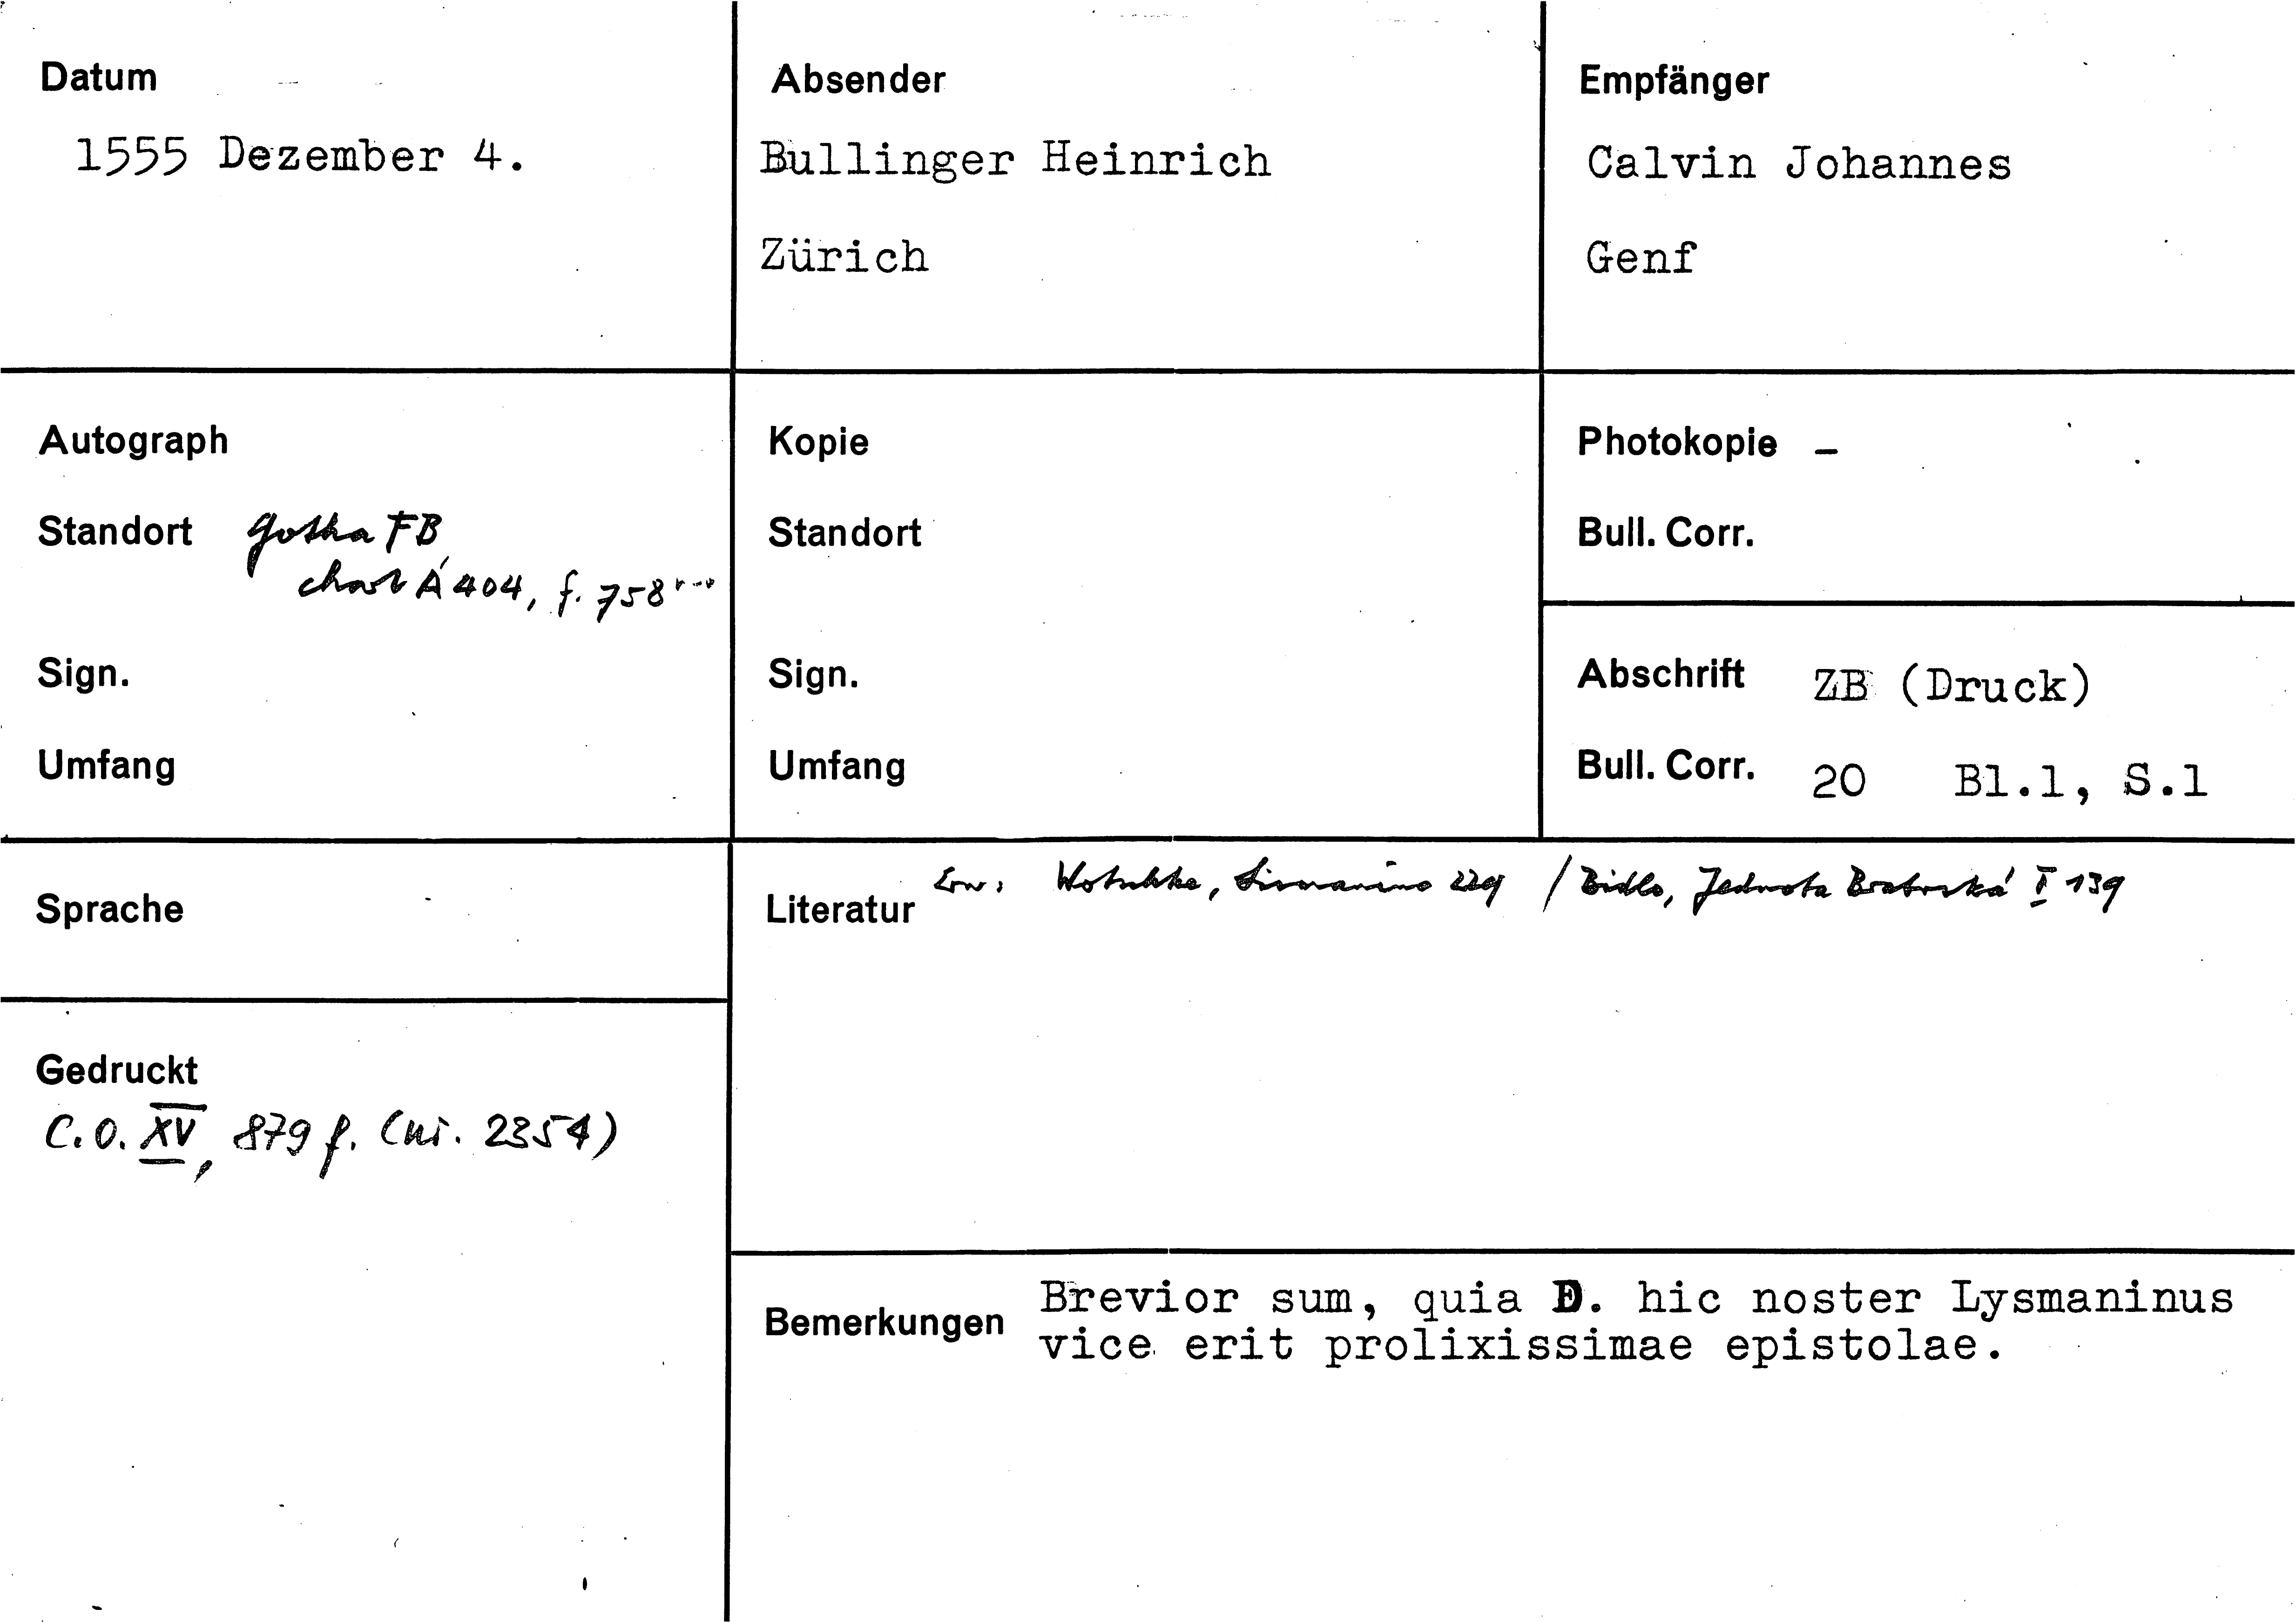 Datum
1555 Dezember 4.
Absender
Bullinger Heinrich
Zürich
Empfänger
Calvin Johannes
Genf
Autograph
Standort Gotha FB,
chart A 404, f. 758
Sign.
Umfang
Kopie
Standort
Sign.
Umfang
Photokopie –
Bull. Corr.
Abschrift ZB (Druck)
Bull. Corr. 20 Bl.1, S.1
Sprache
Literatur Erw: Wotschke, Lismanino 229 / Bidlo, Jednota Bratrská I 139
Gedruckt
C.O. XV, 879 f. (nr. 2354)
Bemerkungen Brevior sum, quia D. hic noster Lysmaninus
vice erit prolixissimae epistolae.